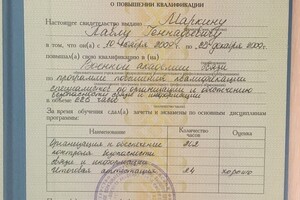 О ПОВЫШЕНИИ КВАЛИФИКАЦИИ
Настоящее свидетельство выдано Маркину
Павлу Геннадьевичу
в том, что он(а) с 10 ноября 2007 г. по 22 декабря 2007 г.
повышал(а) свою квалификацию в (на)
Военной академии связи
по программе повышения квалификации
специалистов по организации и обеспечению
безопасности связи и информации
в объеме часов
За время обучения сдал(а) зачеты и экзамены по основным дисциплинам
программы:
Наименование
Количество часов
Оценка
Организация и обеспечение
контроля безопасности
связи и информации
хорошо